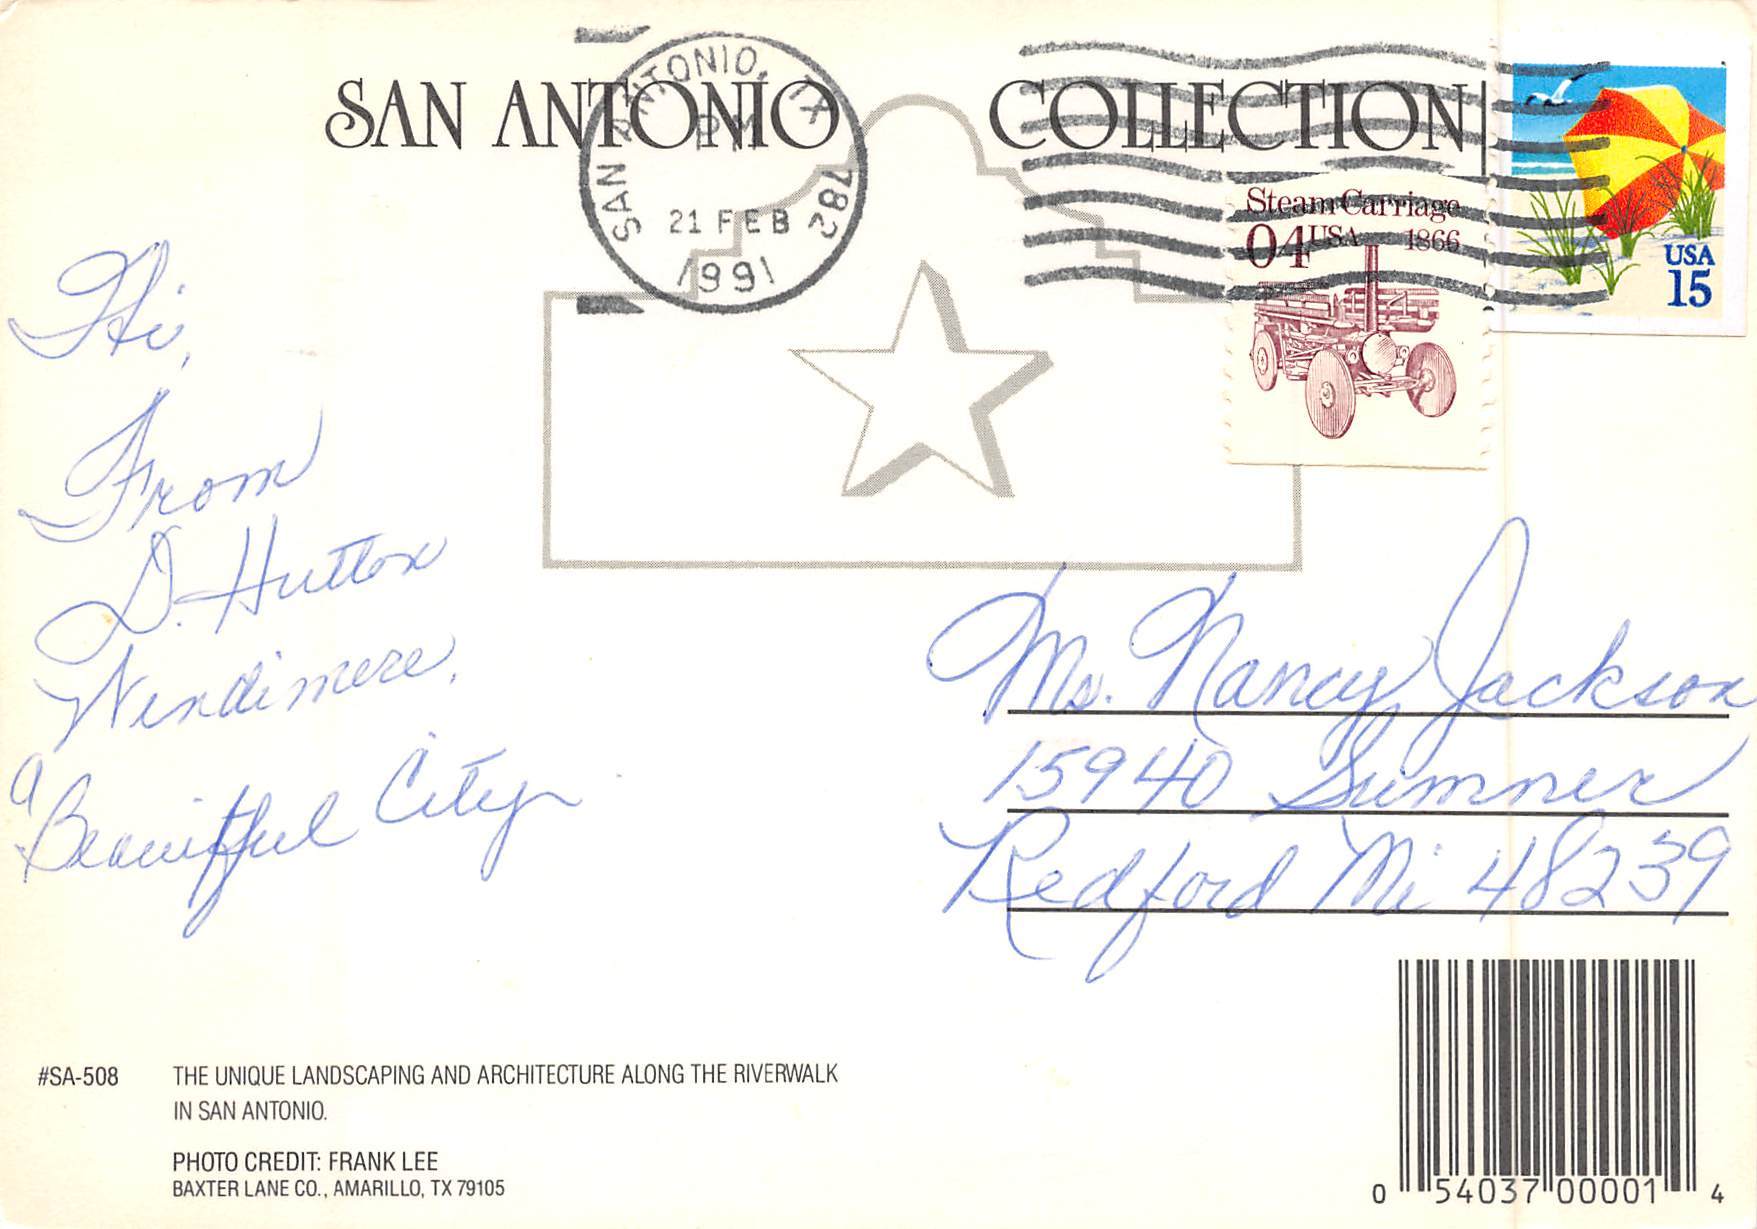 SAN ANTONIO COLLECTION
SAN ANTONIO, TX 782
PM
21 FEB
1991
Steam Carriage
04 USA 1866
USA
15
Hi,
From
D. Hutton
Windimere,
a
Beauitful City
Ms. Nancy Jackson
15940 Sumner
Redford Mi 48239
#SA-508 THE UNIQUE LANDSCAPING AND ARCHITECTURE ALONG THE RIVERWALK
IN SAN ANTONIO.
PHOTO CREDIT: FRANK LEE
BAXTER LANE CO., AMARILLO, TX 79105
0 54037 00001 4